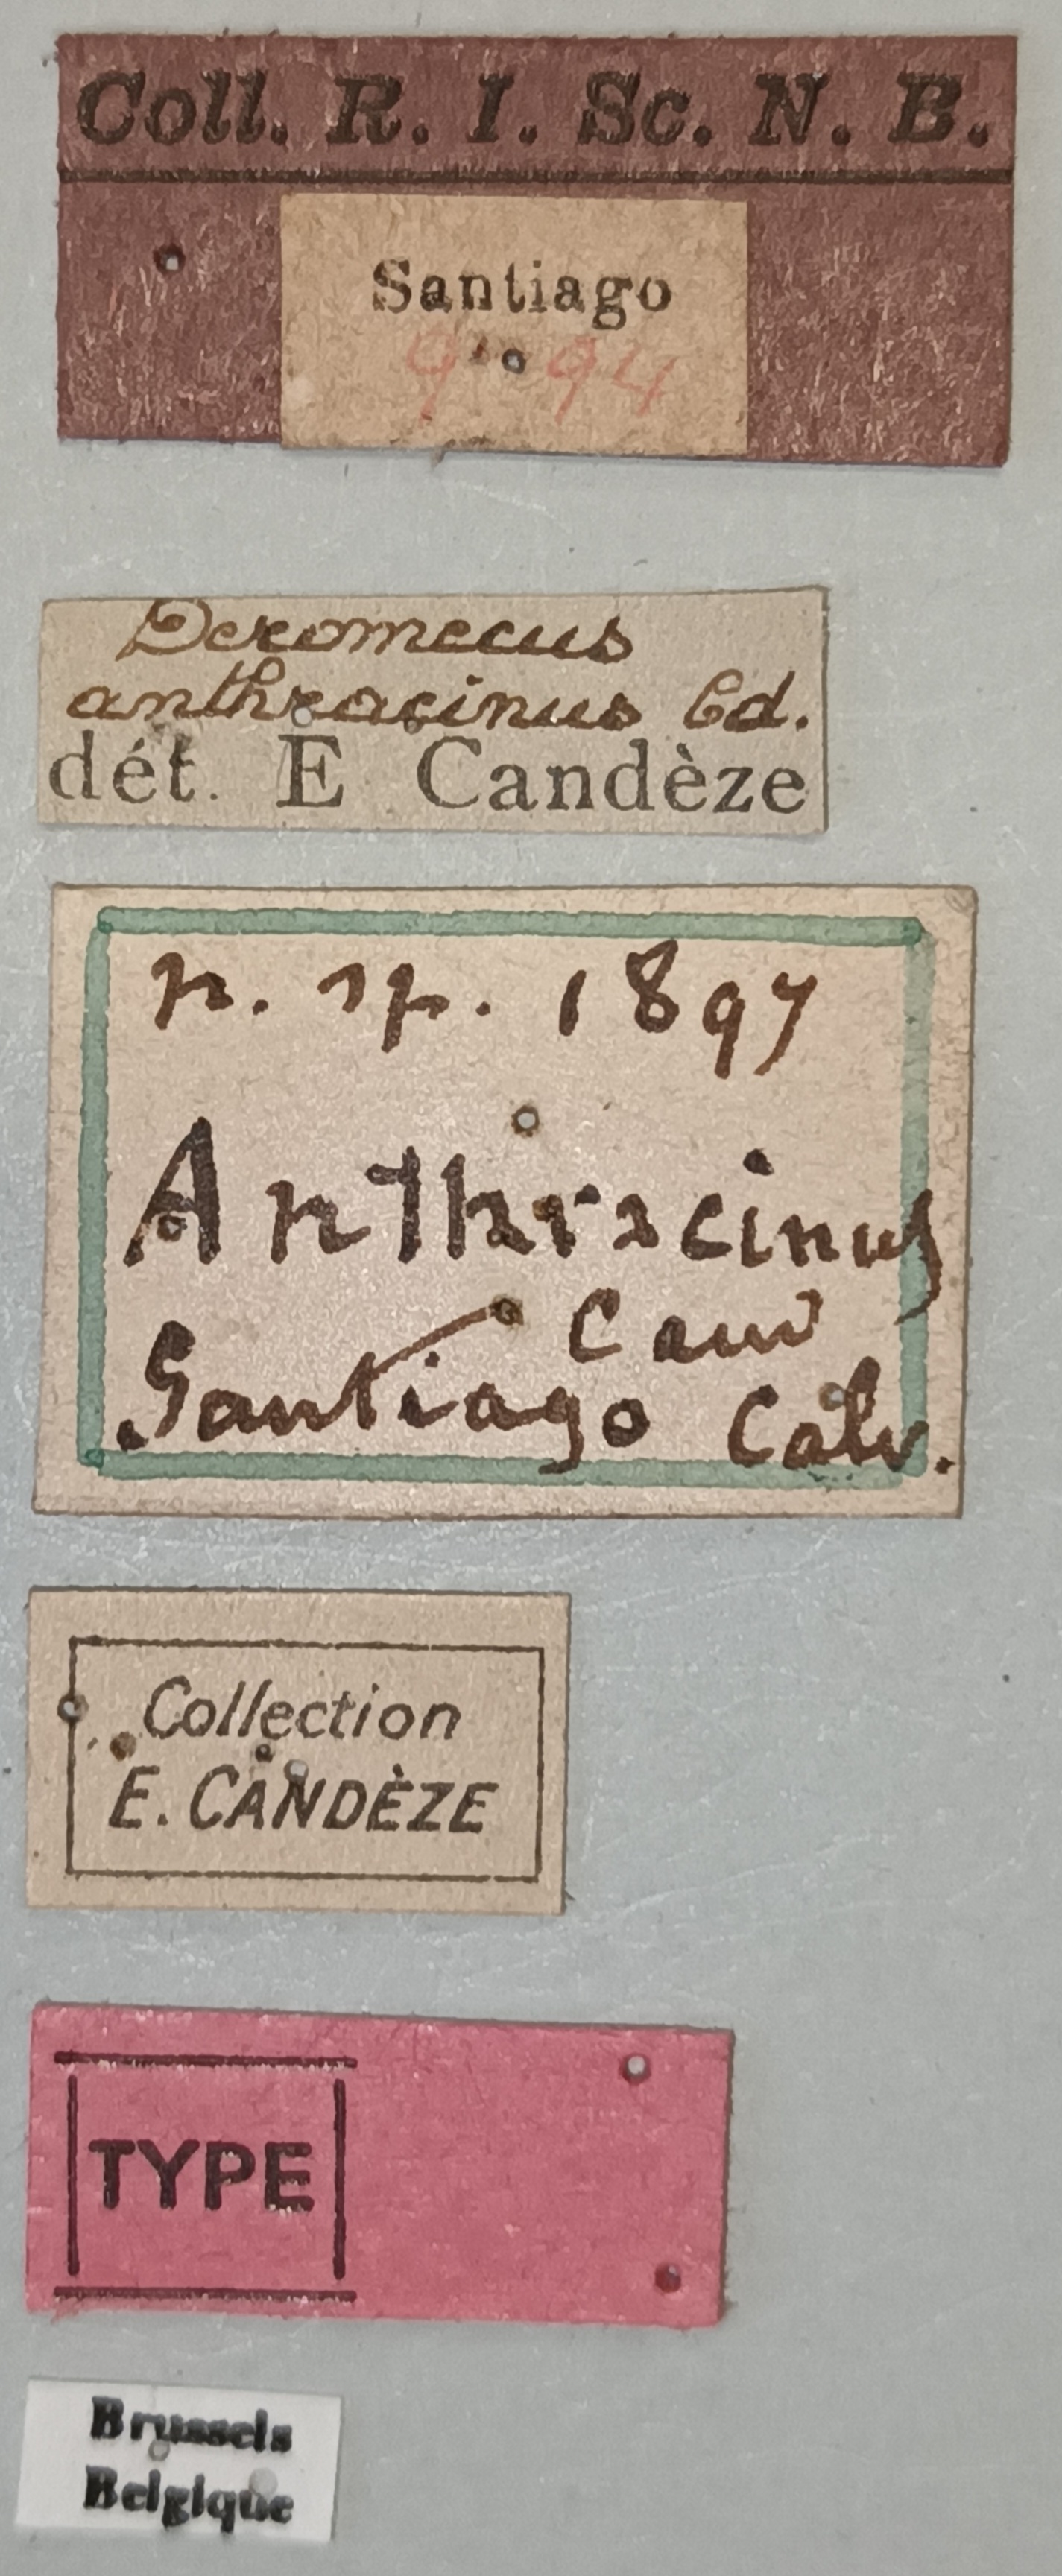 Coll. R. I. Sc. N. B.
Santiago
9 94
Deromecus
anthracinus Cd.
dét. E Candèze
n. sp. 1897
Anthracinus
Cand
Santiago Calv.
Collection
E. CANDÈZE
TYPE
Brussels
Belgique